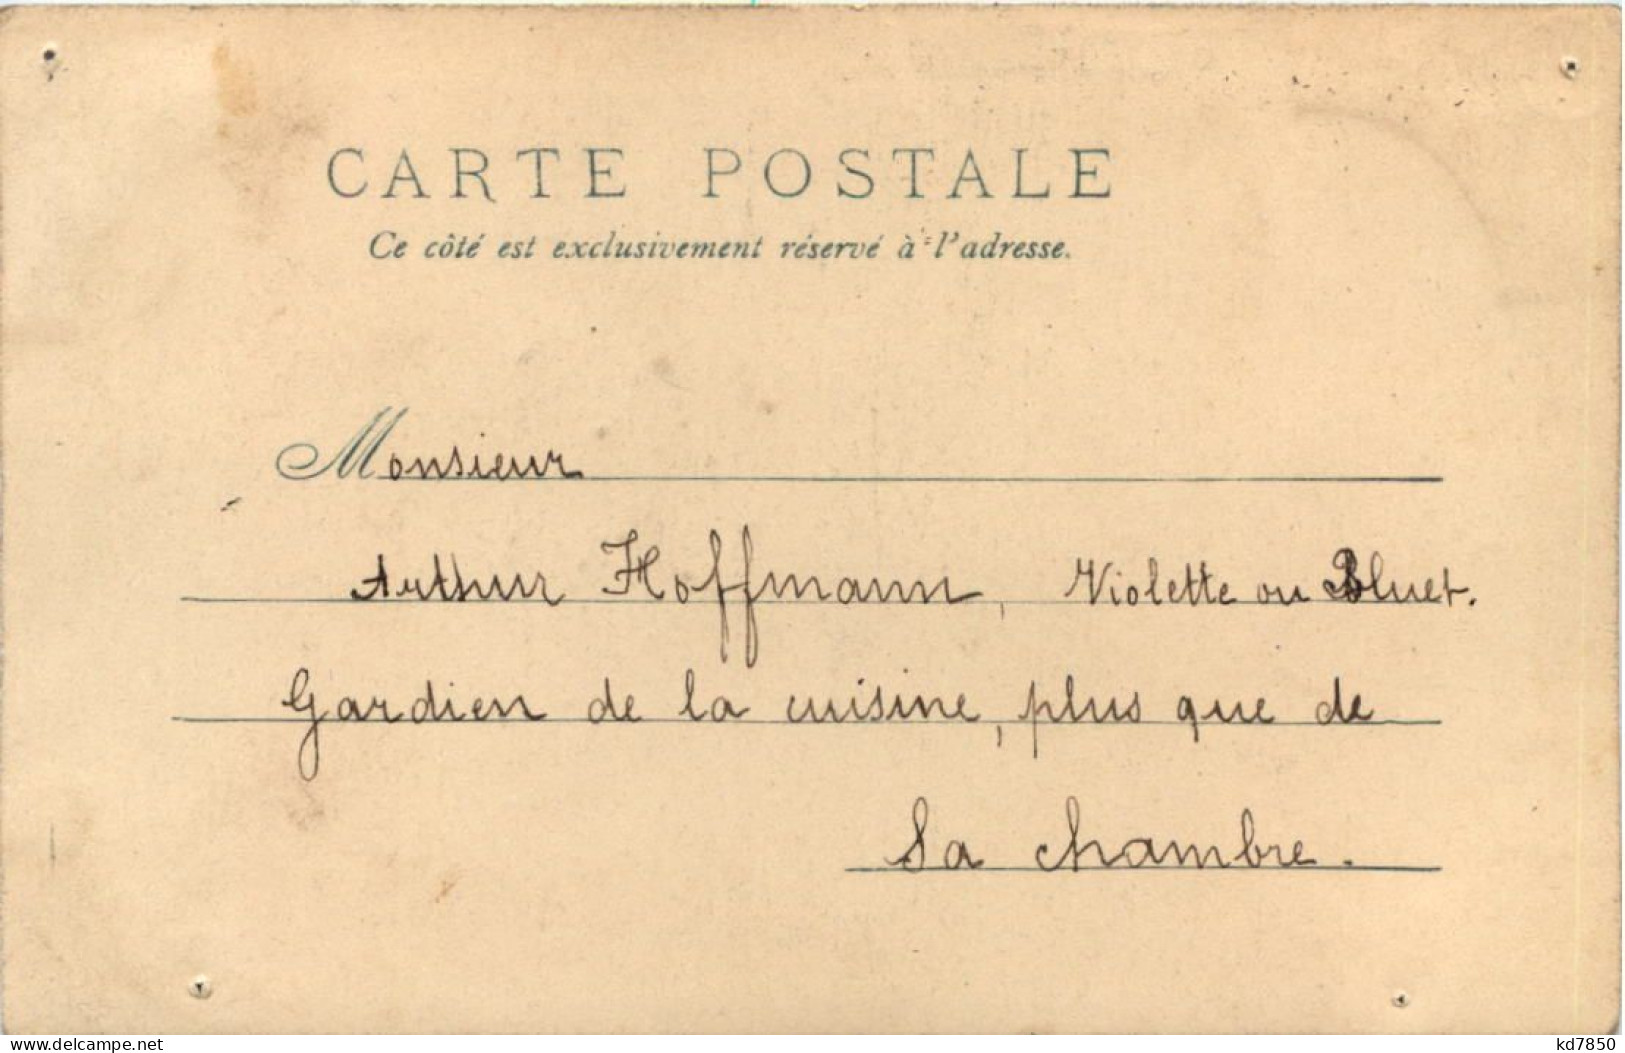 CARTE POSTALE
Ce côté est exclusivement réservé à l'adresse.
Monsieur
Arthur Hoffmann, Violette ou Bluet.
Gardien de la cuisine, plus que de
Sa chambre.
www.delcampe.net
kd7850